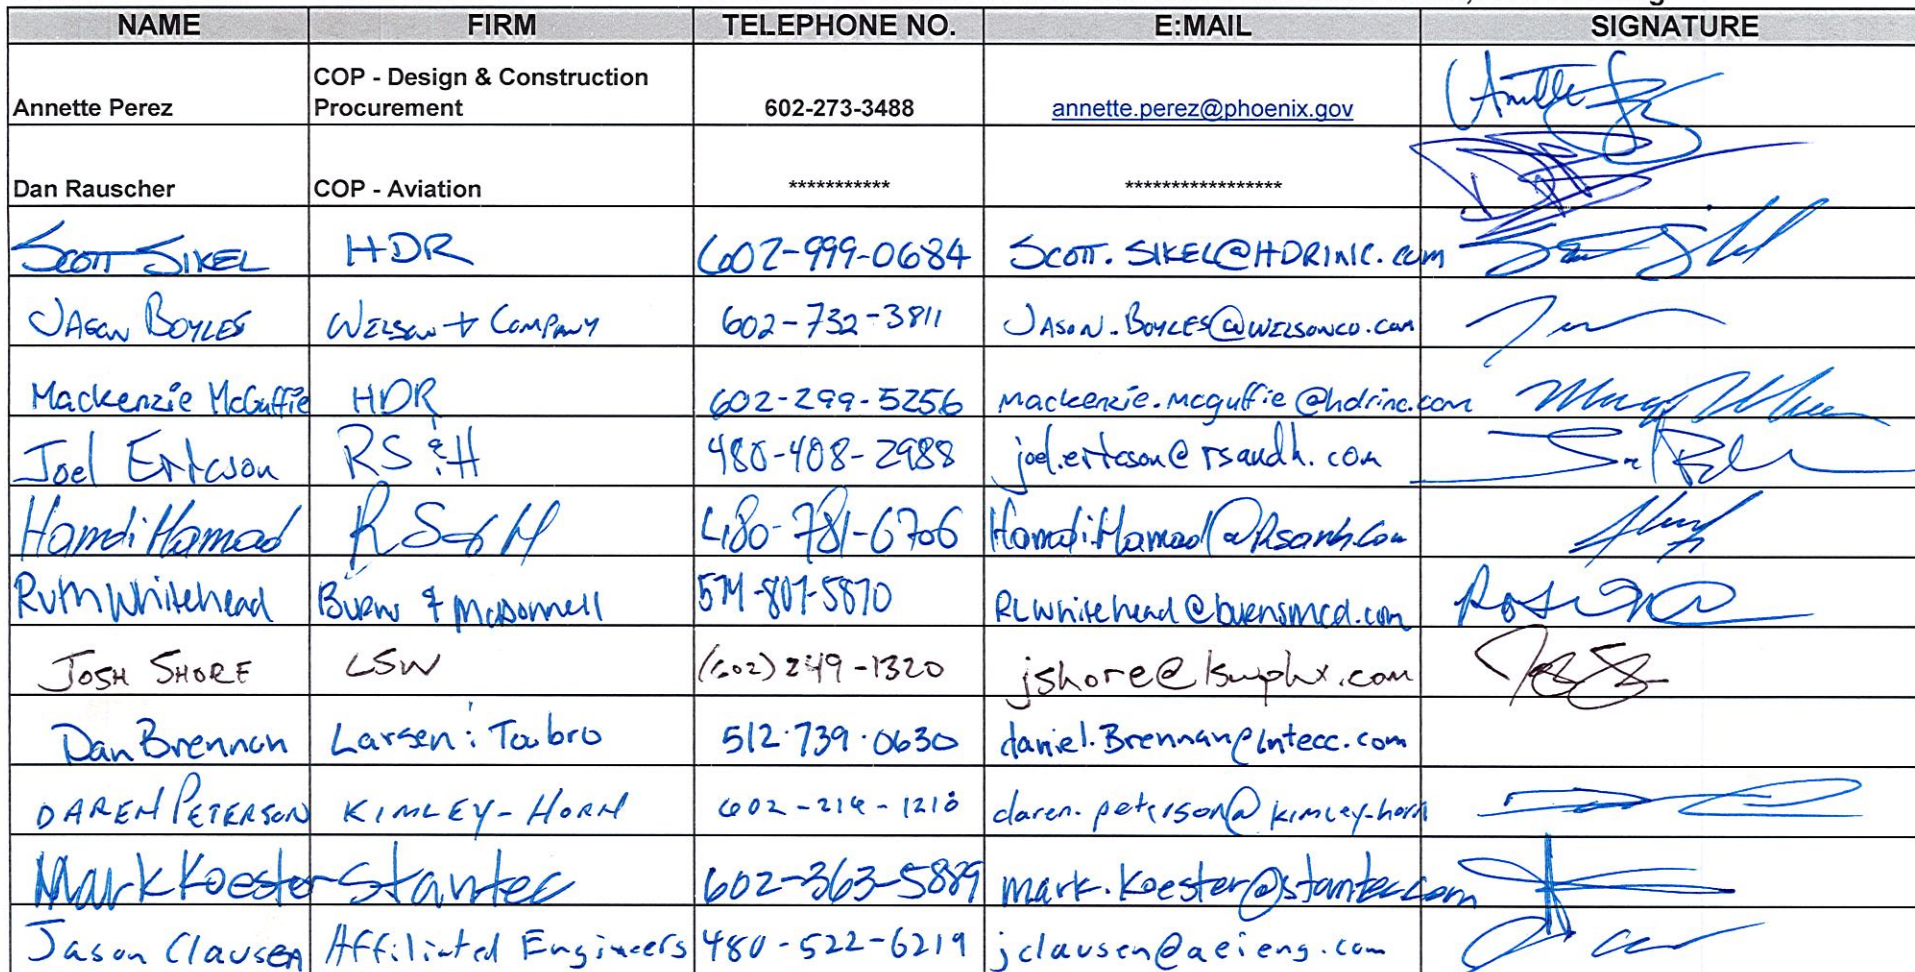 NAME FIRM TELEPHONE NO. E:MAIL SIGNATURE
COP - Design & Construction
Annette Perez Procurement 602-273-3488 annette.perez@phoenix.gov
Dan Rauscher COP - Aviation *********** *****************
SCOTT SIKEL HDR 602-999-0684 SCOTT.SIKEL@HDRINC.com
JASON BOYLES WILSON + COMPANY 602-732-3811 JASON.BOYLES@WILSONCO.com
Mackenzie McGuffie HDR 602-299-5256 mackenzie.mcguffie@hdrinc.com
Joel Ericson RS&H 480-408-2988 joel.ericson@rsandh.com
Hamdi Hamad RS&H 480-781-6706
Ruth Whitehead Burns & McDonnell RLWhitehead@burnsmcd.com
JOSH SHORE LSW (602) 249-1320 jshore@lswphx.com
Dan Brennan Larsen & Toubro 512.739.0630 daniel.Brennan@Lntecc.com
DAREN PETERSON KIMLEY-HORN daren.peterson@kimley-horn
Mark Koester Stantec 602-363-5889 mark.koester@stantec.com
Jason Clausen Affiliated Engineers 480-522-6219 jclausen@aeieng.com